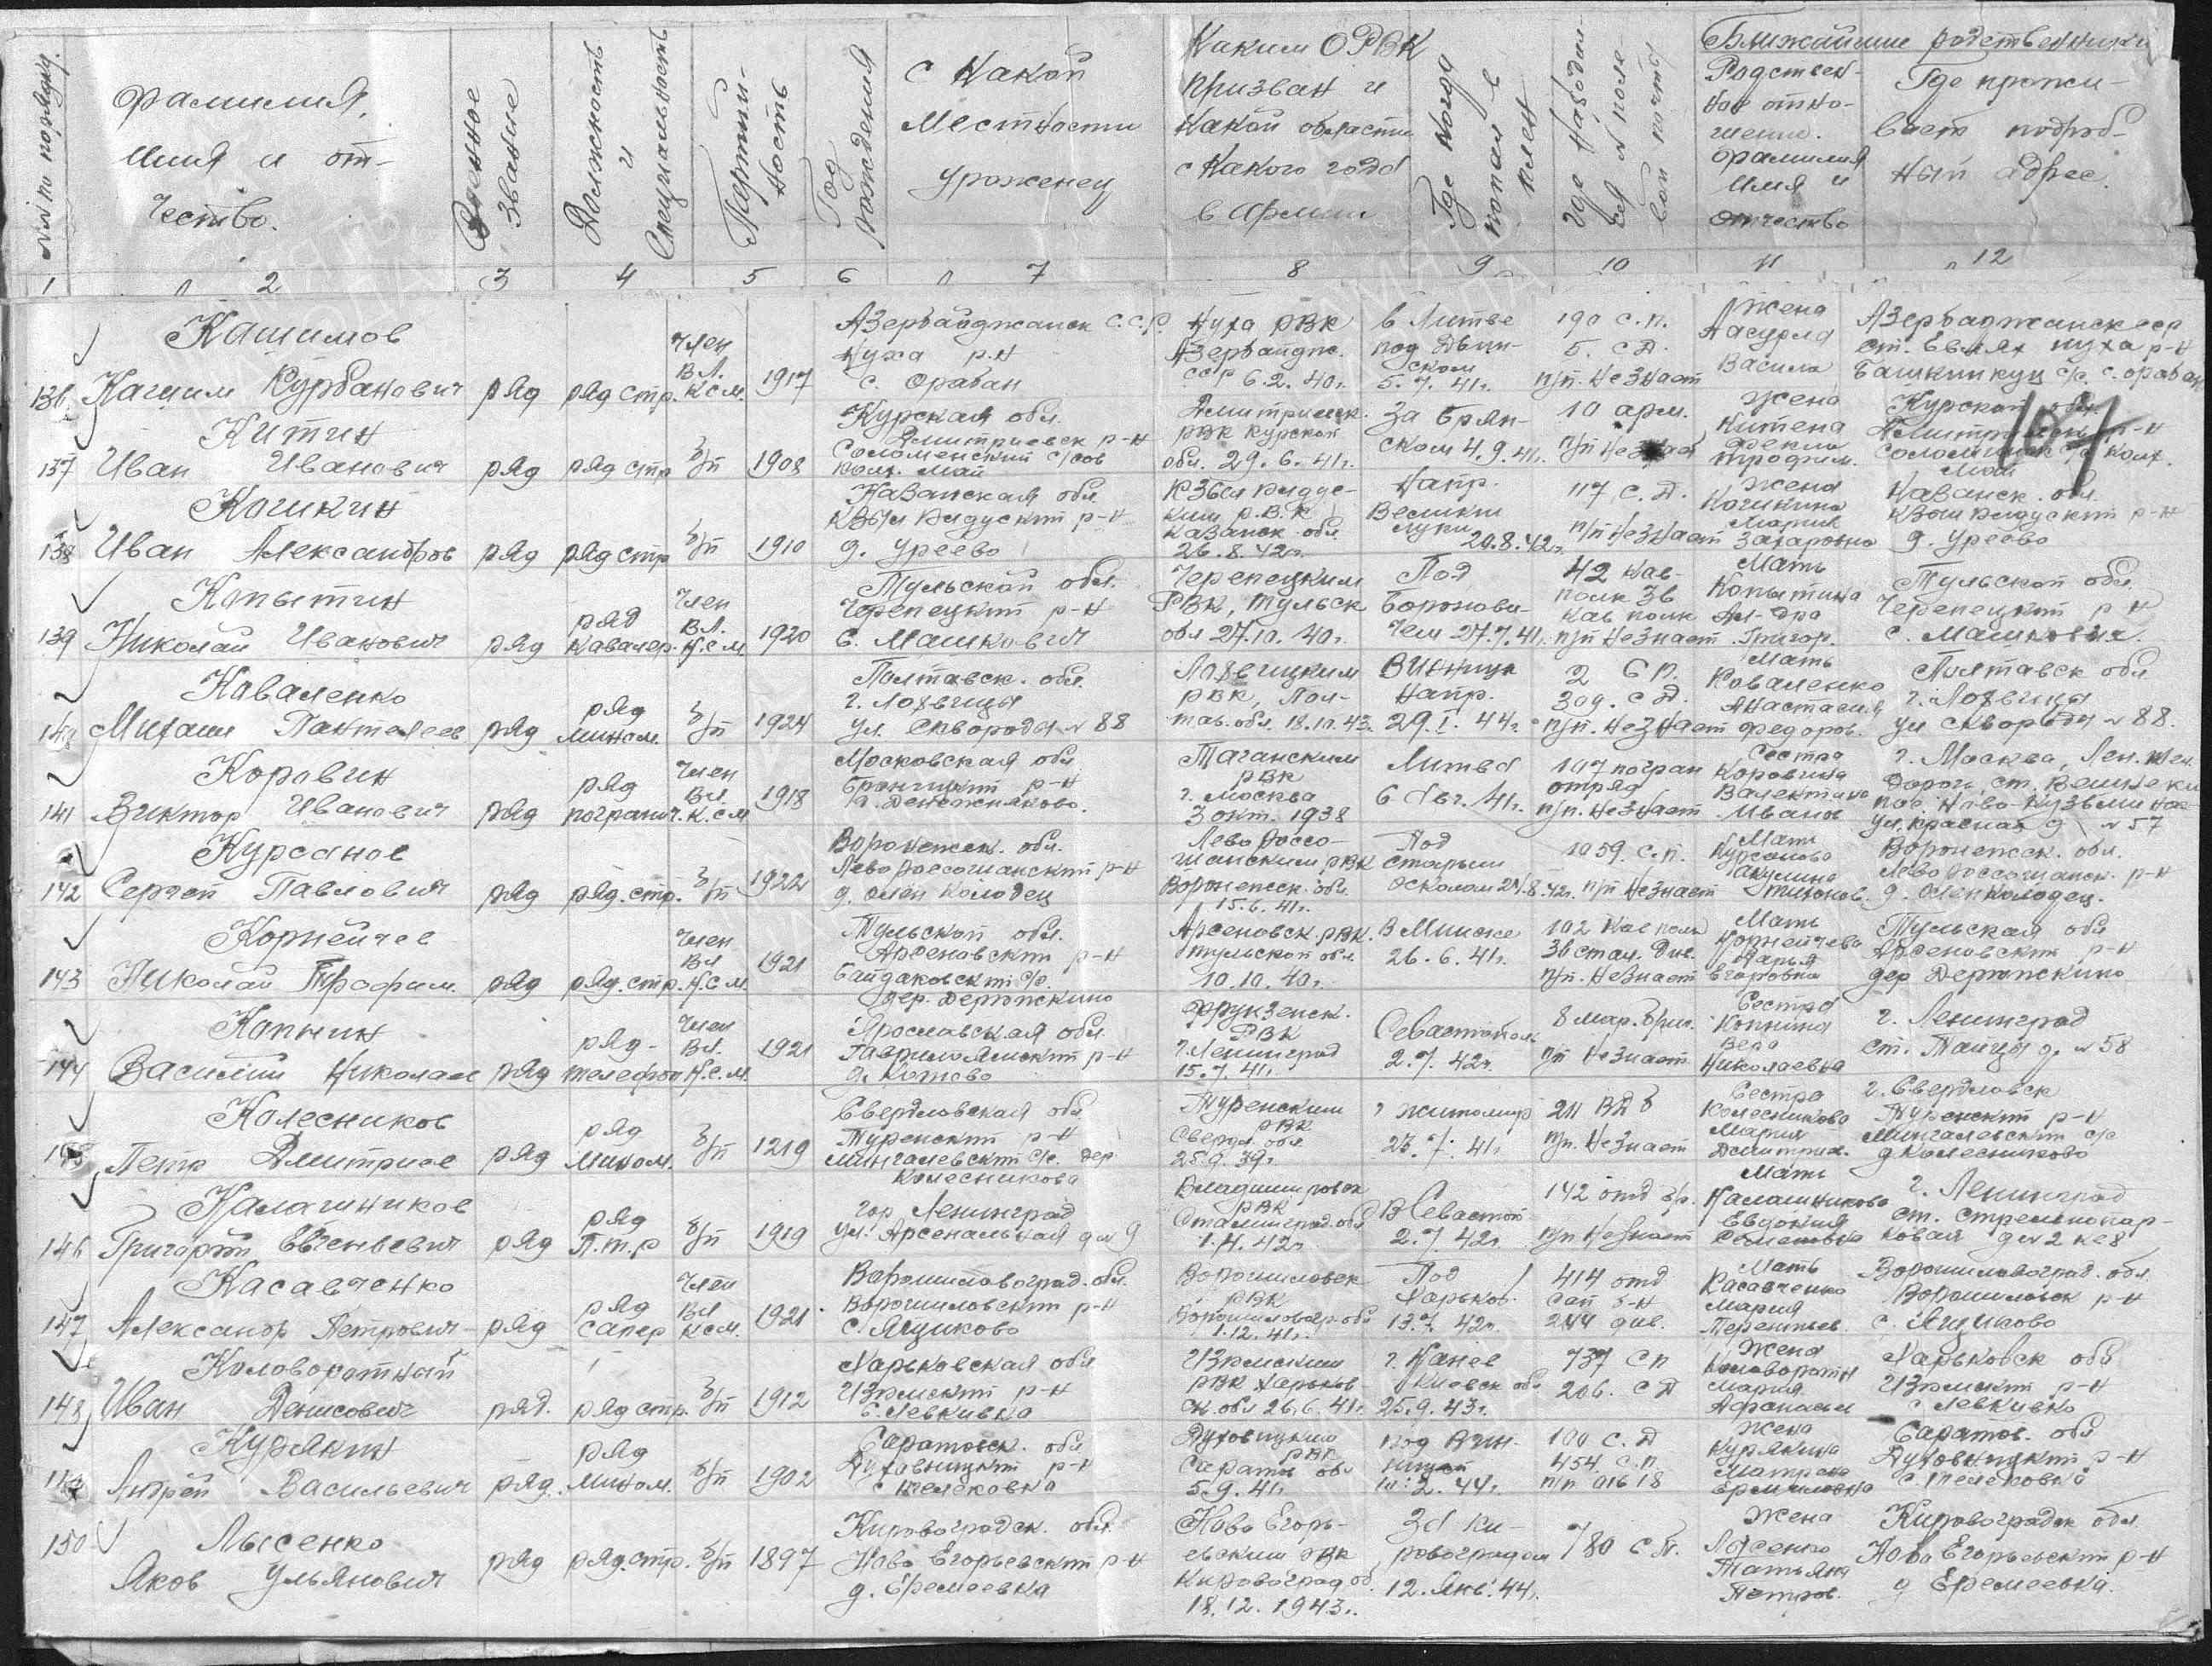 №№ по порядку.
Фамилия, имя и от-чество.
Военное звание
Должность и специальность
Партий-ность
Год рождения
с какой местности уроженец
Каким ОРВК призван и какой области с какого года в Армии
Где когда попал в плен
Где находил-ся № поле-вой почты
Ближайшие родственники
Родствен-ное отно-шение. Фамилия имя и отчество
Где прожи-вает подроб-ный адрес.
1 2 3 4 5 6 7 8 9 10 11 12
Кашимов
136 Кашим Курбанович ряд ряд стр. Член ВЛ. КСМ. 1917
Азербайджанск С.С.Р. Нуха р-н с. Орабан
Нуха РВК Азербайдж. ССР 6.2.40г.
в Литве под Двин-ском 5.7.41г.
190 с.п. 5. с.д. п/п. не знает
Жена Василя
Азербаджанск сср ст. Евлах Нуха р-н с/с. с. Орабан
Китин
137 Иван Иванович ряд ряд стр б/п 1908
Курская обл. Дмитриевск р-н Соломенский с/сов колх. Май
Дмитриевск. РВК Курской обл. 29.6.41г.
За Брян-ском 4.9.41г.
10 арм. п/п не знает
Жена Китена Фекла Трофим.
Курская обл. р-н колх. Май
Кошкин
138 Иван Александров ряд ряд стр б/п 1910
Казанская обл. р-н д. Уреево
р.в.к Казанск обл. 26.8.42г.
Напр. Великии Луки 20.8.42г.
117 с.д. п/п не знает
Жена Кошкина Мария Захаровна
Казанск. обл. р-н д. Уреево
Копытин
139 Николай Иванович ряд ряд кавалер. Член ВЛ. К.С.М. 1920
Тульской обл. Черепецкий р-н с. Машкович
Черепецким РВК, Тульск обл 27.10.40г.
Под Боронови-чем 27.7.41г.
42 кав-полк 36 кав полк п/п не знает
Мать Копытина Ал-дра Григор.
Тульской обл. Черепецкий р-н с. Машкович.
Коваленко
140 Михаил Пантелеев ряд ряд мином. б/п 1924
Полтавск. обл. г. Лохвицы ул. Сквороды № 88
Лохвицким РВК, Пол-тав. обл. 18.10.43г.
Винница напр. 29.I.44г.
2 с.п. 309. с.д. п/п. не знает
Мать Коваленко Анастасия Федоров.
Полтавск обл г. Лохвицы ул Сквороды № 88.
Коровин
141 Виктор Иванович ряд ряд погранич. Член ВЛ. К.С.М 1918
Московская обл. Бронницкий р-н д. Денежняково.
Таганским РВК г. Москва 3 окт. 1938
Литва 6 Авг. 41г.
107 погран отряд п/п. не знает
Сестра Коровина Валентина Иванов
г. Москва, Лен. жел. дорог, ст. Вешняки пос. Ново-Кузьминое ул. Красная д № 57
Курсанов
142 Сергей Павлович ряд ряд.стр. б/п 1922
Воронежск. обл. Левороссошанский р-н д. Олен Колодец
Лево россо-шанским РВК Воронежск. обл. 15.6.41г.
Под Старым Осколом 24.8.42г.
1059. с.п. п/п не знает
Мать Курсанова Акулина Тихонов.
Воронежск. обл. Левороссошанск. р-н д. Олен колодец.
Корнейчев
143 Николай Трофим. ряд ряд.стр. Член ВЛ К.С.М. 1921
Тульской обл. Арсеновский р-н Байдаковский с/с. дер.
Арсеновск РВК. Тульской обл 10.10.40г.
В Минске 26.6.41г.
102 кав полк 36 стал. див. п/п. не знает
Мать Корнейчева Дарья Егоровна
Тульская обл Арсеновский р-н дер
Копнин
144 Василий Николаев ряд ряд-телефон Член ВЛ. К.С.М. 1921
Ярославская обл. Гаврилоямский р-н д. Котово
Фрунзенск. РВК г. Ленинград 15.7.41г.
Севастополь 2.7.42г.
8 мар. бриг. п/п не знает
Сестра Копнина Вера Николаевна
г. Ленинград ст. Тайцы д. № 58
Колесников
145 Петр Дмитриев ряд ряд мином. б/п 1219
Свердловская обл Туренский р-н Мингалевский с/с. дер. Колесникова
Туренским РВК Сверд. обл 25.9.39г.
г Житомир 23.7.41г
211 ВДБ п/п. не знает
Сестра Колесникова Мария Дмитрив.
г. Свердловск Туренский р-н Мингалевский с/с д Колесниково
Калашников
146 Григорий Евгеньевич ряд ряд П.т.р б/п 1919
гор Ленинград ул. Арсенальная д № 9
Владимировск РВК Сталинград. обл 1.4.42г
В Севастоп 2.7.42г.
142 отд б/р. п/п не знает
Мать Калашникова Евдокия
г. Ленинград ст. Стрельнопар-ковая д № 2 кв 8
Касавченко
147 Александр Петрович ряд ряд сапер Член ВЛ КСМ. 1921
Ворошиловоград. обл. Ворошиловский р-н с. Ящиково
Ворошиловск РВК Ворошиловогр. обл 1.12.41г.
Под Харьков. 13.7.42г.
414 отд сап б-н 244 див.
Мать Касавченко Мария Терентьев.
Ворошиловоград. обл. Ворошиловск р-н с. Ящиково
Коловоротный
148 Иван Денисович ряд. ряд стр. б/п 1912
Харьковская обл Изюмский р-н с. Левкивка
Изюмским РВК Харьков-ск. обл 26.6.41г.
г. Канев Киевск обл 25.9.43г.
737 с п 206. с д
Жена Коловоротн Мария Афанасьев
Харьковск обл Изюмский р-н с Левкивко
Курякин
149 Андрей Васильевич ряд. ряд мином. б/п 1902
Саратовск. обл Духовницкий р-н с Телековка
Духовицким РВК Саратов обл 5.9.41г
под Вин-ницей 10.2.44г.
100 с.д 454 с.п. п/п 01618
Жена Курякина Матрена
Саратов. обл Духовницкий р-н с. Телековка
150 Лысенко
Яков Ульянович ряд ряд.стр. б/п 1897
Кировоградск. обл. Ново Егорьевский р-н д. Еремеевка
Ново Егорь-евским РВК Кировоград об. 18.12.1943г.
За Ки-ровоградом 12.Янв.44г.
780 с.п.
Жена Лысенко Татьяна Петров.
Кировоградск обл. Ново Егорьевский р-н д Еремеевка.